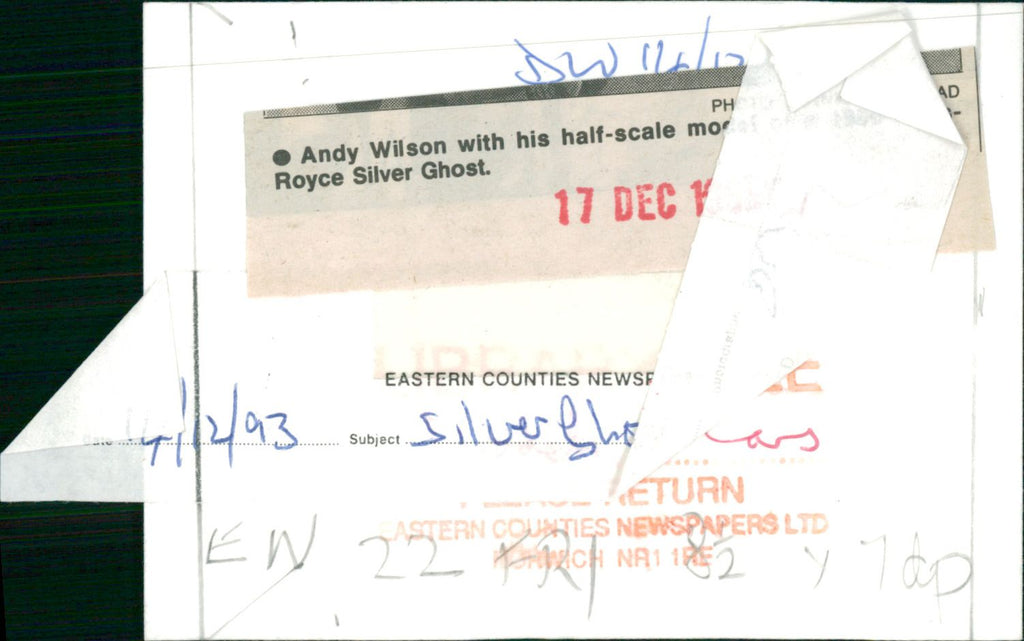 PH AD
● Andy Wilson with his half-scale mo -
Royce Silver Ghost.
17 DEC 1
EASTERN COUNTIES NEWSP
Date 14/12/93 Subject Silver Gho cars
RETURN
EASTERN COUNTIES NEWSPAPERS LTD
NORWICH NR1 1RE
EN 22 FRI 8½ 7dp